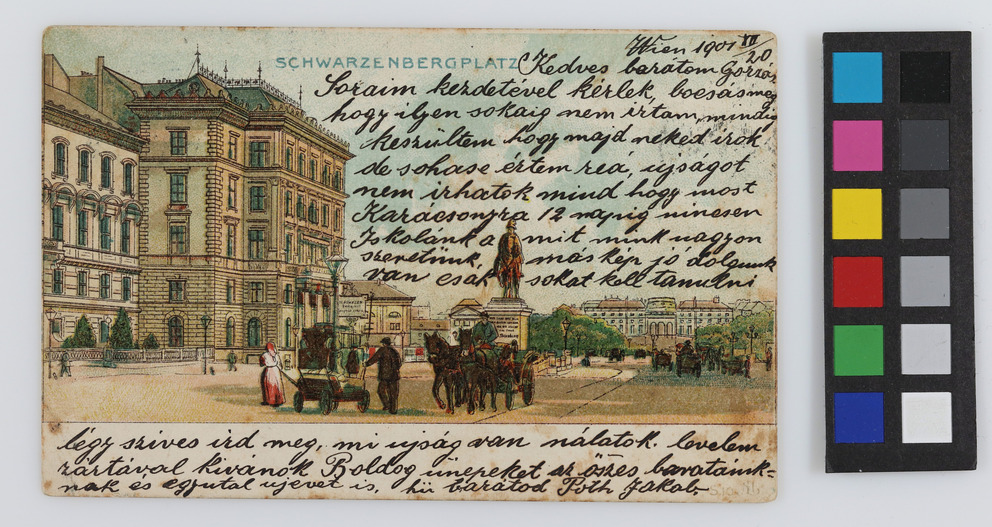 SCHWARZENBERGPLATZ
Wien 1901 XII
20
Kedves baratom
Soraim kezdetével kérlek, bocsásmeg
hogy ilyen sokaig nem irtam, mindig
keszültem hogy majd neked irok
de sohase értem reá, ujságot
nem irhatok mind hogy most
Karácsonyra 12 napig nincsen
Iskolánk a mit mink nagyon
szeretünk, máskép jó dolgunk
van csak sokat kell tanulni
légy szives ird meg, mi ujság van nálatok. levelem
zártával kivánok Boldog ünepeket az öszes barataink-
nak és egyutal ujevet is, hü barátod Poth Jakab.